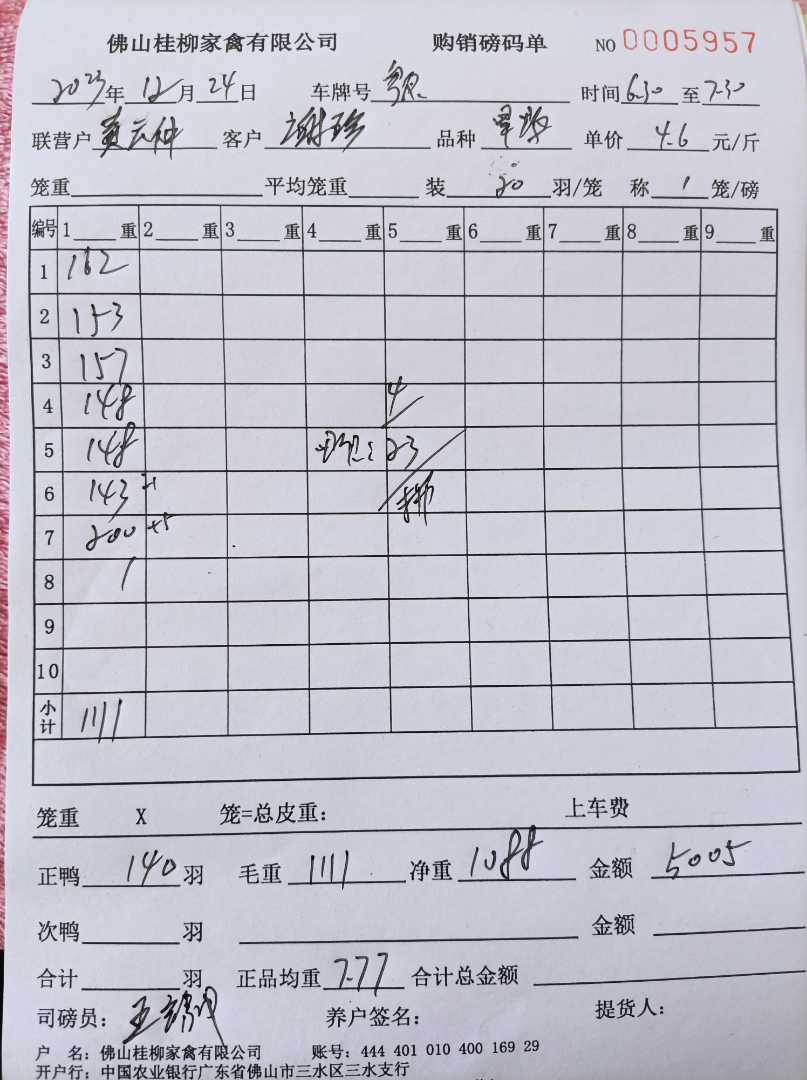 佛山桂柳家禽有限公司 购销磅码单 NO 0005957
2023年 12月 24日 车牌号 时间 6.30 至 7.30
联营户 黄云仲 客户 谢珍 品种 单价 4.6 元/斤
笼重 平均笼重 装 20 羽/笼 称 1 笼/磅
编号 1 重 2 重 3 重 4 重 5 重 6 重 7 重 8 重 9 重
1 162
2 153
3 157
4 148 4
5 148 23
6 143 +1
7 200 +5
8 1
9
10
小计 1111
笼重 X 笼=总皮重: 上车费
正鸭 140 羽 毛重 1111 净重 1088 金额 5005
次鸭 羽 金额
合计 羽 正品均重 7.77 合计总金额
司磅员: 养户签名: 提货人:
户 名: 佛山桂柳家禽有限公司 账号: 444 401 010 400 169 29
开户行: 中国农业银行广东省佛山市三水区三水支行